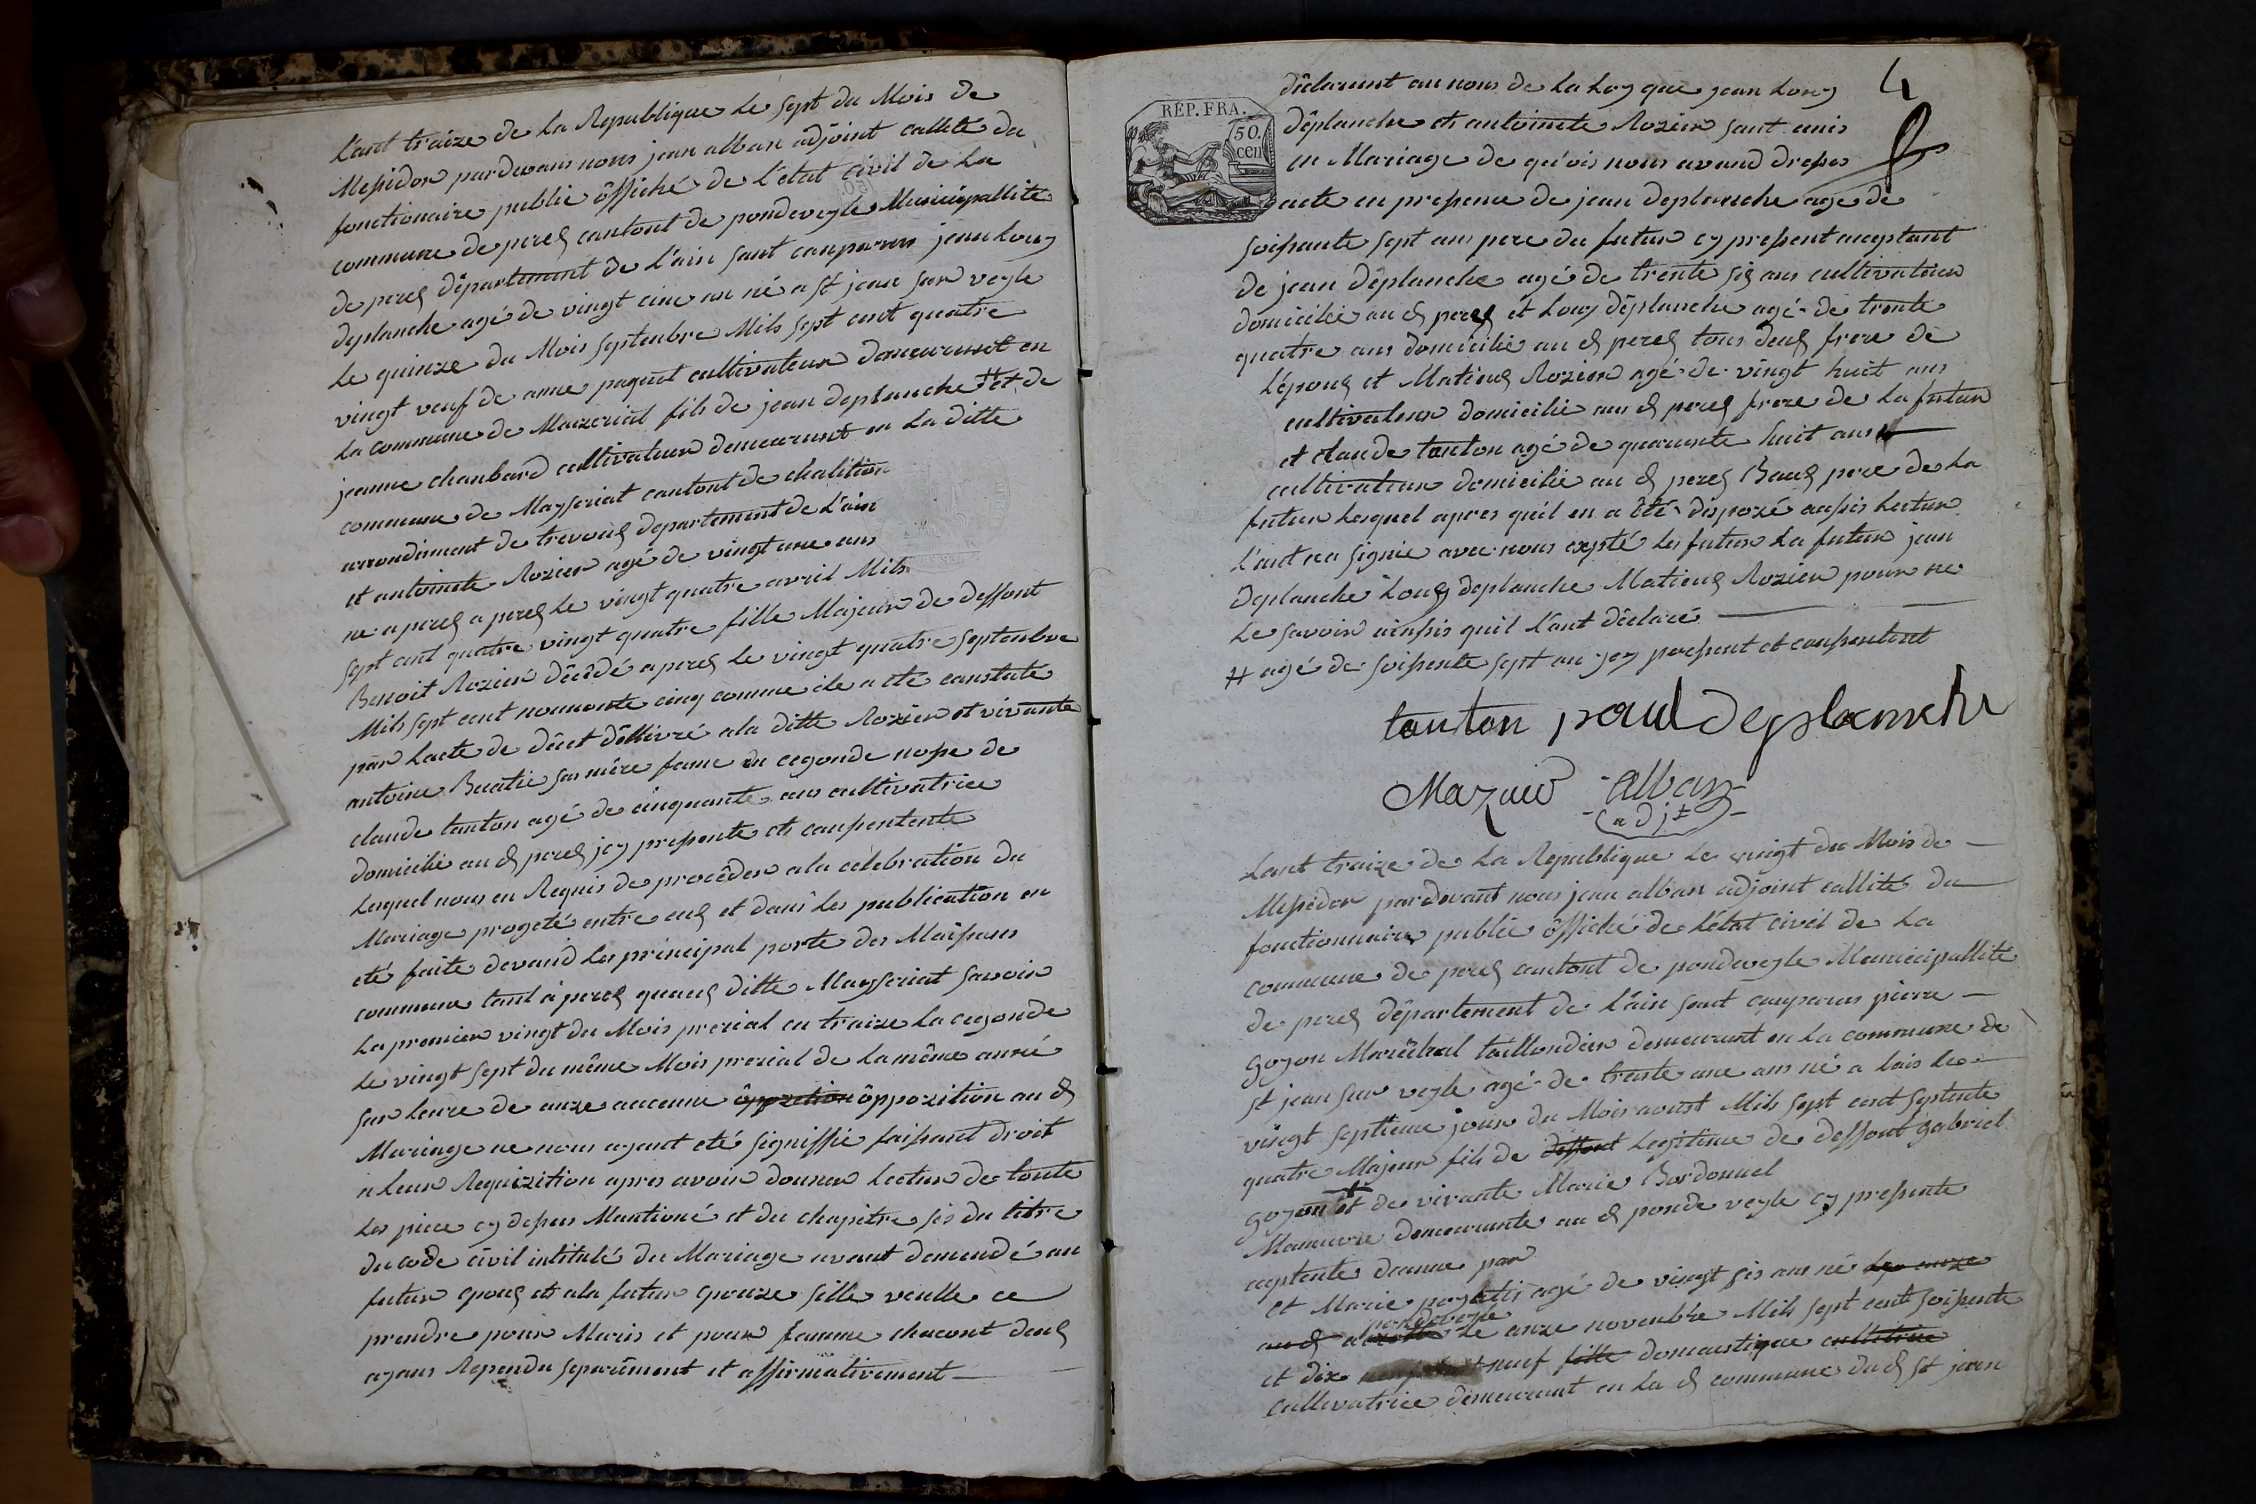 L'ant traize de la Republique le sept du Mois de
Messidor pardevans nous jean alban adjoint callité du
fonctionaire public ôffiché de l'etat civil de la
commune de perex cantont de pondeveyle Municipallité
de perex dêpartement de l'ain sont conparus jean Louy
deplanche agé de vingt cinc an né a st jean sur veyle
le quinze du Mois septenbre Mils sept cent quatre
vingt veuf de anne paquet cultivateur demeurant en
la commune de Maizeriat fils de jean deplanche # et de
jeanne chanbard cultivateur demeurant en la ditte
commune de Mayseriat cantont de chalition
arrondiment de trevoux departement de L'ain
et antoinete Rozier agé de vingt une ans
ne a perex a perex le vingt quatre avril Mils
sept cent quatre vingt quatre fille Majeur de deffont
Benoit Rozier décêdé a perex le vingt quatre septenbre
Mils sept cent nounonte cinq comme ile a ete constaté
par lacte de dêcet dêllivré a la ditte Rozier et vivante
antoine Buatie sa mére fame en cegonde nosse de
claude tonton agé de cinquante ans cultivatrice
domicilié au d perex jcy pressente et consentente
lesquel nous en Requis de procêder a la célebration du
Mariage progeté entre eux et dans les publication en
eté faite devand la principal porte des Maisons
commune tant à perex quaux ditte Mayseriat savoir
la premier vingt du Mois prerial en traize la cegonde
le vingt sept du même Mois prerial de la même anné
sur leure de onze aucenne ôppozition ôppozition au d
Mariage ne nous ayant eté signiffié faissant droit
a leur Requizition apres avoir donner lectur de toute
les piece cy dessus Mantioné et du chapitre sis du titre
du code civil intitulé du Mariage avont demendé au
futur epoux et a la futur epouze sille veulle ce
prendre pour Maris et pour famme chacont deux
ayans Repondu separêment et affirmativement
4
REP. FRA.
50. cen
dêclarent au nom de la Loy que jean Louy
dêplanche et antoinete Rozier sont unis
en Mariage de qu'oi nous avand dresser
acte en pressence de jean deplanche agé de
soissante sept ans pere du futur cy pressent aceptant
de jean dêplanche agé de trente sis ans cultivateur
domicilié au d perex et Louy dêplanche agé de trente
quatre ans domicilié au d perex tous deux frere de
L'époux et Matieux Rozier agé de vingt huit ans
cultivateur domicilié au d perex frere de la futur
et claude tonton agé de quarante huit ans
cultivateur domicilié au d perex Baux pere de la
futur lesquel apres quil en a êté dispozé aussis lectur
l'ant na signié avec nous cepté les futur la futur jean
deplanche Louy deplanche Matieux Rozier pour ne
le savoir ainssis quil l'ant dêclaré
# agé de soissente sept an jcy pressent et consentent
tonton paul deplanche
Mazuid alban
adjt
Lant traize de la Republique le vingt du Mois de
Messidor pardevant nous jean alban adjoint callité du
fonctionnaire public ôffiché de l'état civil de la
commune de perex cantont de pondeveyle Municipallité
de perex dêpartement de l'ain sont conparus pierre
goyon Marêchal taillandier demeurant en la commune de
st jean sur veyle agé de trante une ans né a lais le
vingt septieme jour du Mois aoust Mils sept cent septente
quatre Majeur fils de deffont legitime de deffont gabriel
goyon et de vivante Marie Bordonnel
Maneuvre demeurante au d ponde veyle cy pressente
ceptente deanne par
et Marie agé de vingt sis ans né le onze
pondeveyle
au d le onze novenbre Mils sept cent soissente
et dix neuf fille domaistique cultivtrice
cultivatrice demeurant en la d commune dud st jean